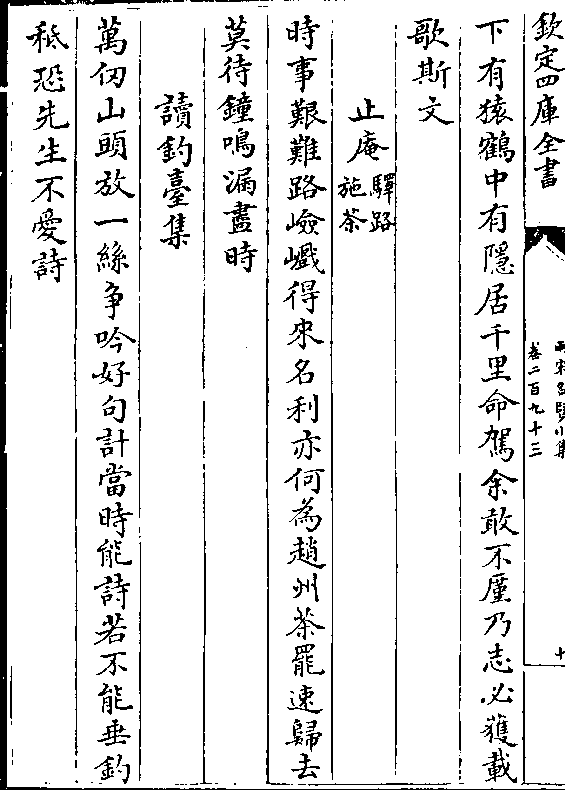 欽定四庫全書
兩宋名賢小集
卷二百九十三
十
下有猿鶴中有隱居千里命駕余敢不厪乃志必獲載
歌斯文
止庵驛路施茶
時事艱難路嶮巇得來名利亦何為趙州茶罷速歸去
莫待鐘鳴漏盡時
讀釣臺集
萬仞山頭放一絲爭吟好句計當時能詩若不能垂釣
秪恐先生不愛詩